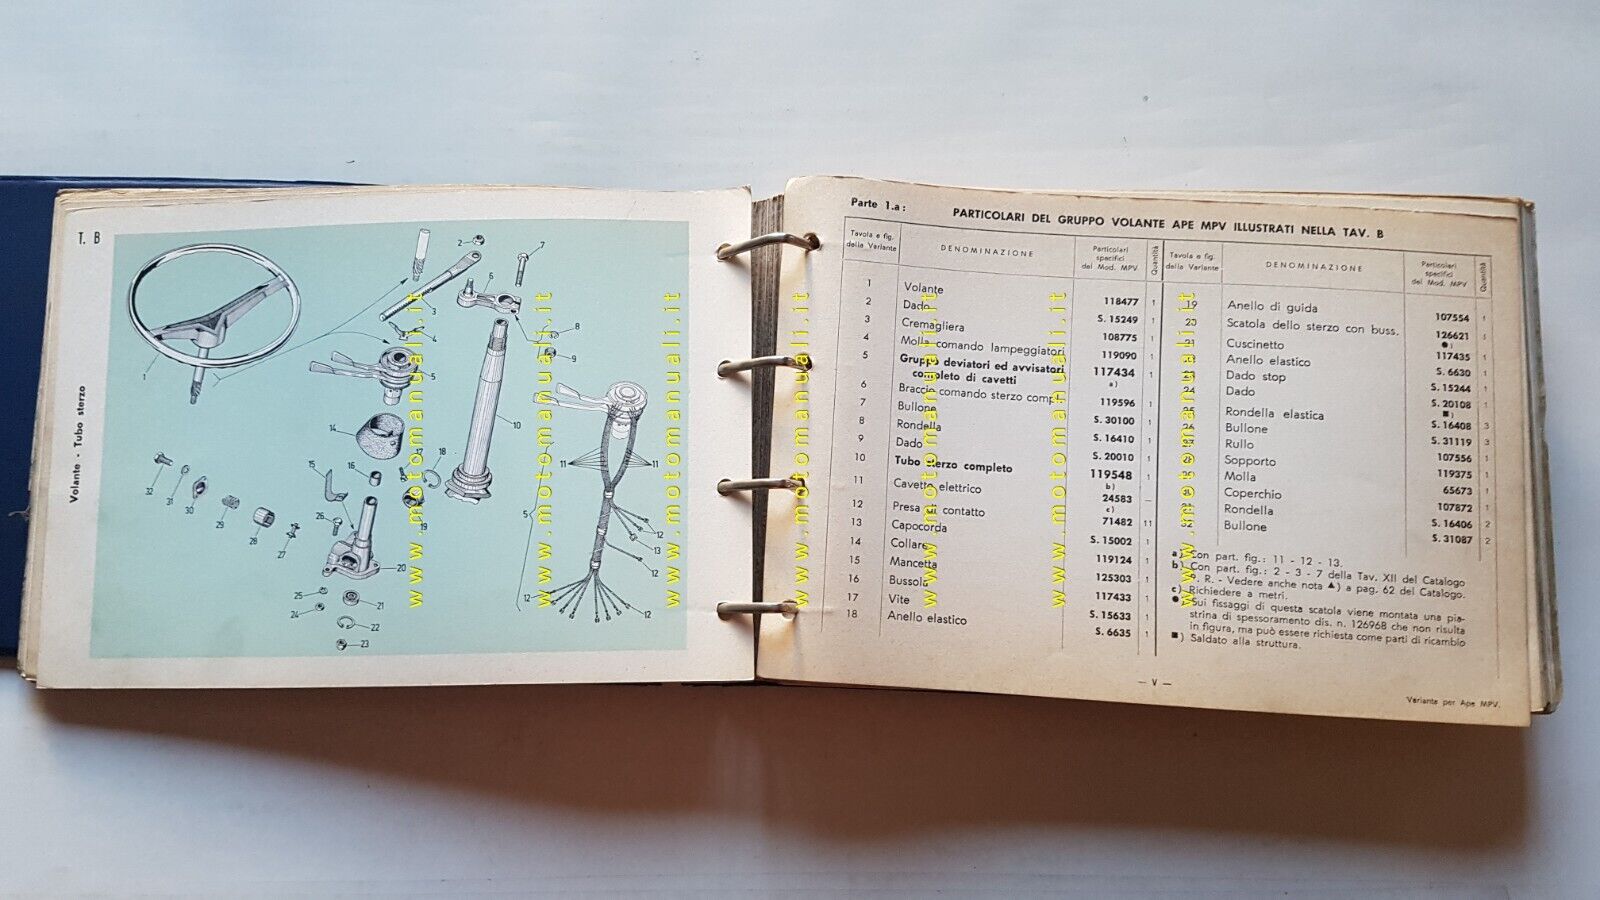 T. B
Volante - Tubo sterzo
1
2
3
4
5
6
7
8
9
10
11
11
12
12
12
12
13
14
15
16
17
18
19
20
21
22
23
24
25
26
27
28
29
30
31
32
5
www.motomanuali.it
www.motomanuali.it
www.motomanuali.it
Parte 1.a: PARTICOLARI DEL GRUPPO VOLANTE APE MPV ILLUSTRATI NELLA TAV. B
Tavola e fig. della Variante DENOMINAZIONE Particolari specifici del Mod. MPV Quantità Tavola e fig. della Variante DENOMINAZIONE Particolari specifici del Mod. MPV Quantità
1 Volante 118477 1
2 Dado S. 15249 1
3 Cremagliera 108775 1
4 Molla comando lampeggiatori 119090 1
5 Gruppo deviatori ed avvisatori
completo di cavetti 117434 1
a)
6 Braccio comando sterzo compl. 119596 1
7 Bullone S. 30100 1
8 Rondella S. 16410 1
9 Dado S. 20010 1
10 Tubo sterzo completo 119548 1
b)
11 Cavetto elettrico 24583 —
c)
12 Presa di contatto 71482 11
13 Capocorda S. 15002 1
14 Collare 119124 1
15 Mancetta 125303 1
16 Bussola 117433 1
17 Vite S. 15633 1
18 Anello elastico S. 6635 1
19 Anello di guida 107554 1
20 Scatola dello sterzo con buss. 126621 1
●)
21 Cuscinetto 117435 1
22 Anello elastico S. 6630 1
23 Dado stop S. 15244 1
24 Dado S. 20108 1
■)
25 Rondella elastica S. 16408 3
26 Bullone S. 31119 3
27 Rullo 107556 1
28 Sopporto 119375 1
29 Molla 65673 1
30 Coperchio 107872 1
31 Rondella S. 16406 2
32 Bullone S. 31087 2
a) Con part. fig.: 11 - 12 - 13.
b) Con part. fig.: 2 - 3 - 7 della Tav. XII del Catalogo
P. R. - Vedere anche nota ▲) a pag. 62 del Catalogo.
c) Richiedere a metri.
● Sui fissaggi di questa scatola viene montata una pia-
strina di spessoramento dis. n. 126968 che non risulta
in figura, ma può essere richiesta come parti di ricambio
■) Saldato alla struttura.
— V —
Variante per Ape MPV.
www.motomanuali.it
www.motomanuali.it
www.motomanuali.it
www.motomanuali.it